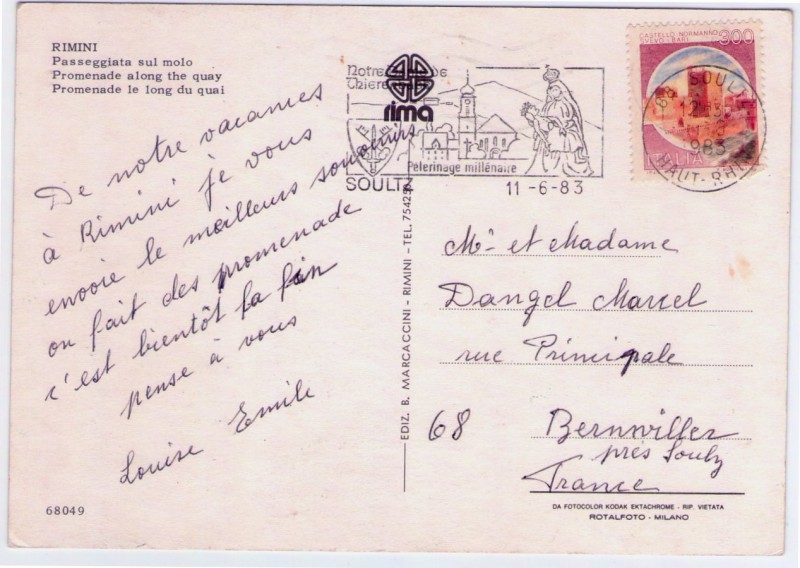 RIMINI
Passeggiata sul molo
Promenade along the quay
Promenade le long du quai
De notre vacances
à Rimini je vous
envoie le meilleurs souvenirs
on fait des promenade
c'est bientôt la fin
pense à vous
Louise Emile
68049
EDIZ. B. MARCACCINI - RIMINI - TEL. 75425
Notre
Thier
rima
Pelerinage millénaire
SOULTZ
11-6-83
CASTELLO NORMANNO
SVEVO-BARI
300
ITALIA
68 SOULTZ
983
HAUT-RHIN
Mr et Madame
Dangel Marcel
rue Principale
68 Bernwiller
près Soultz
France
DA FOTOCOLOR KODAK EKTACHROME - RIP. VIETATA
ROTALFOTO - MILANO